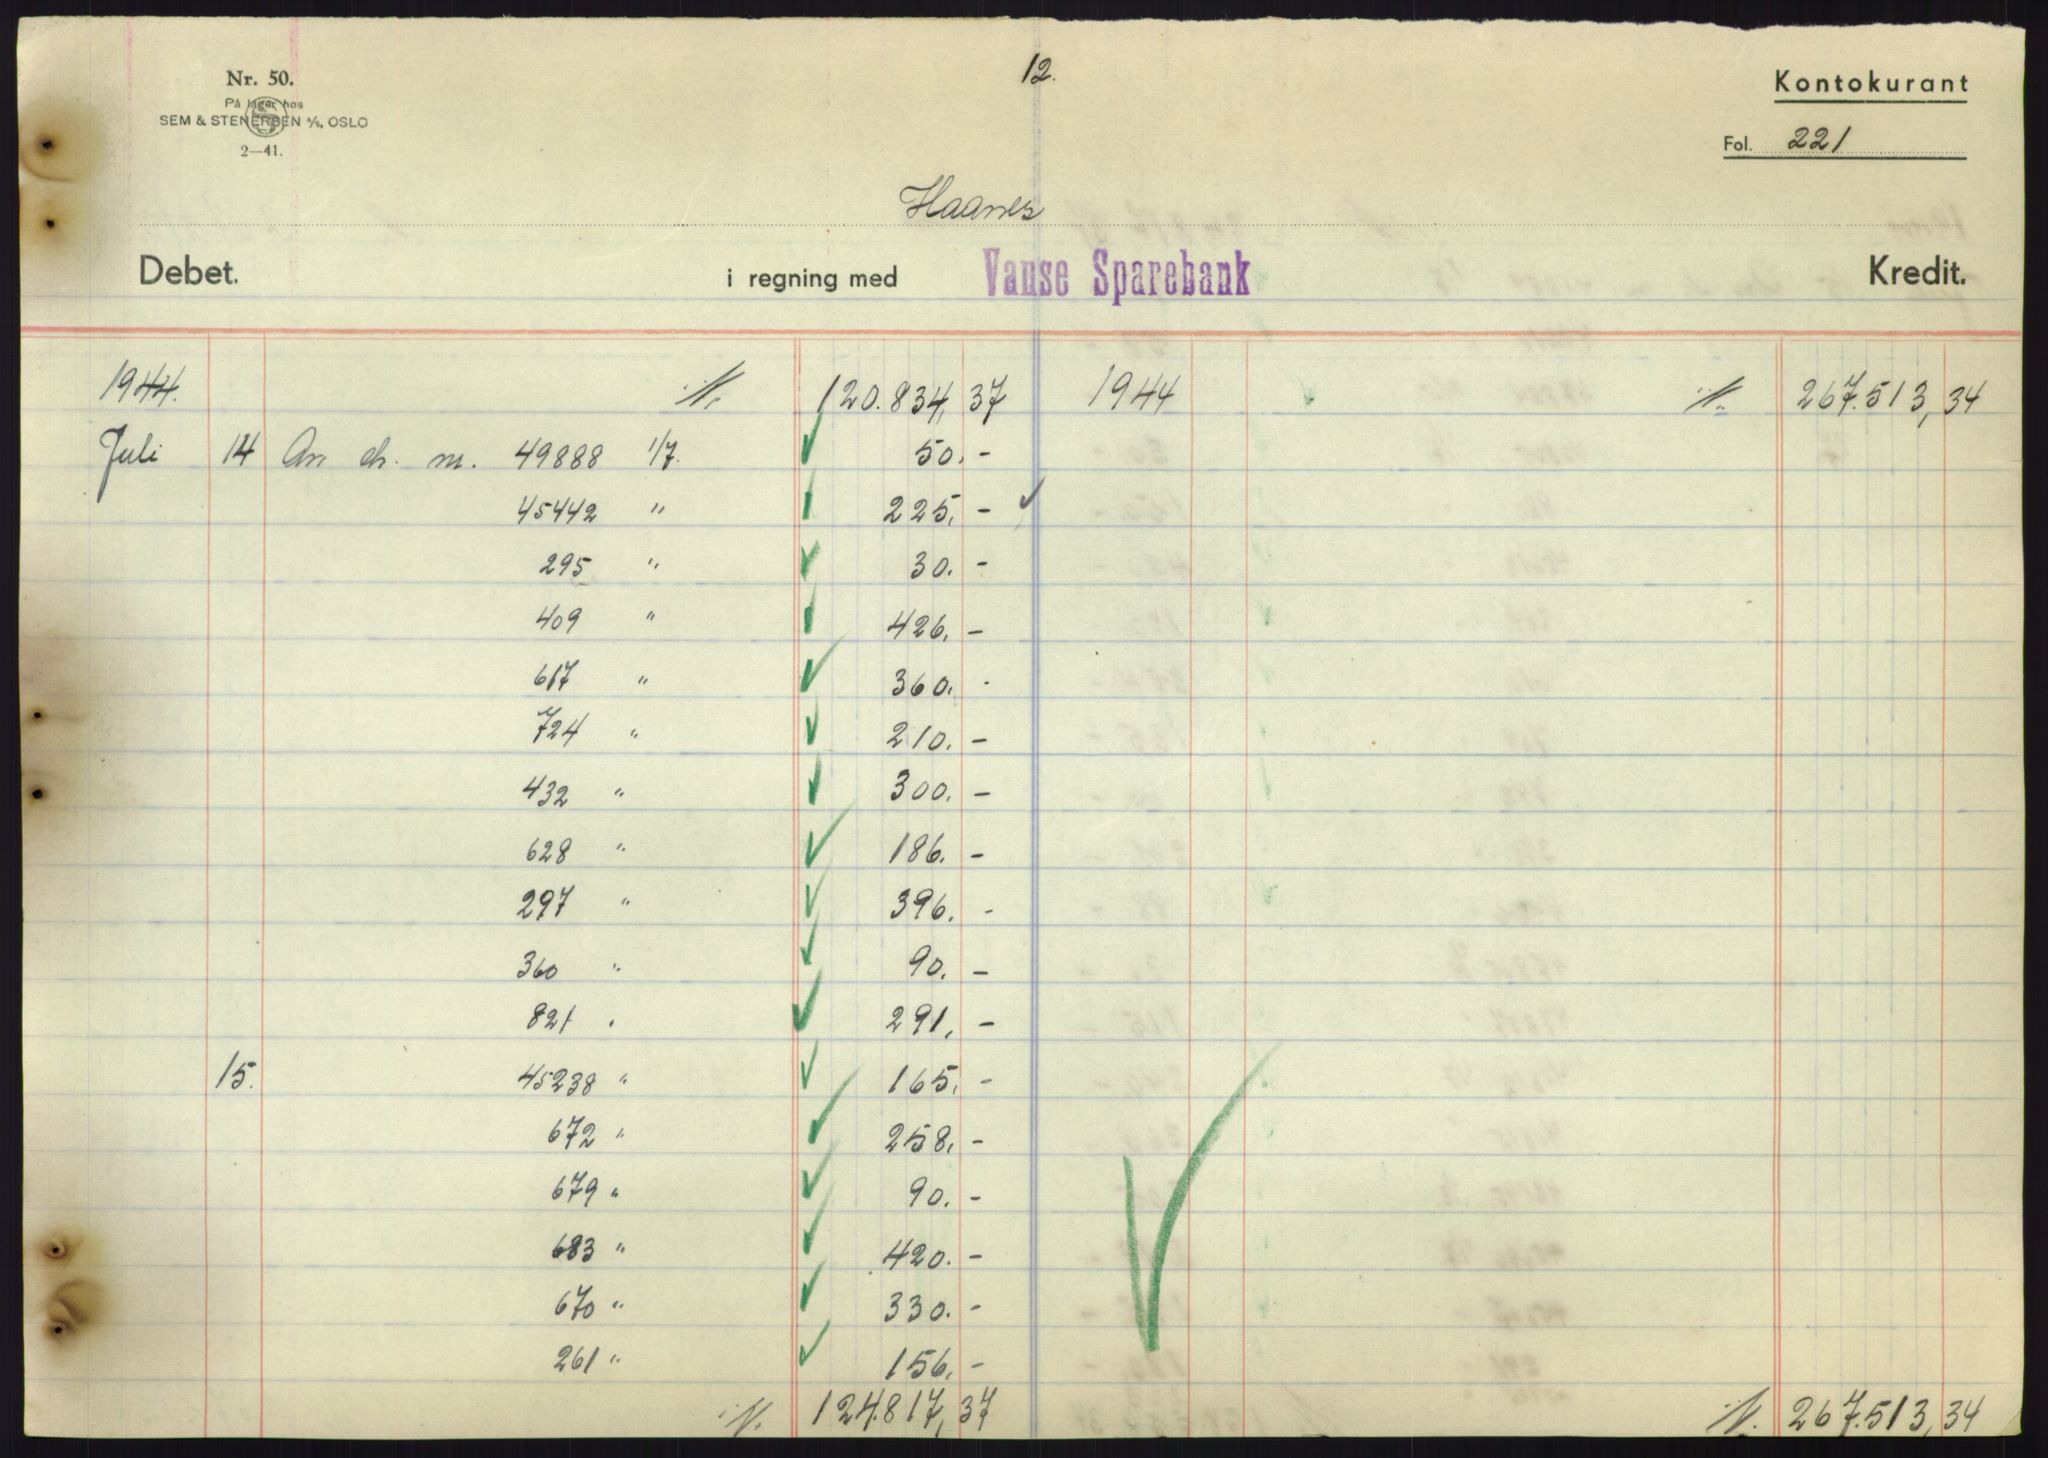 Nr. 50.
På lager hos
SEM & STENERSEN A/S, OSLO
2—41.
12.
Kontokurant
Fol. 221
Haanes
Debet. i regning med Vanse Sparebank Kredit.
1944. 120.834,37 1944 267.513,34
Juli 14 An ch. nr. 49888 1/7. 50.-
45442 " 225.-
295 " 30.-
409 " 426.-
617 " 360.-
724 " 210.-
432 " 300.-
628 " 186.-
297 " 396.-
360 " 90.-
821 " 291.-
15. 45238 " 165.-
672 " 258.-
679 " 90.-
683 " 420.-
670 " 330.-
261 " 156.-
124.817,37 267.513,34